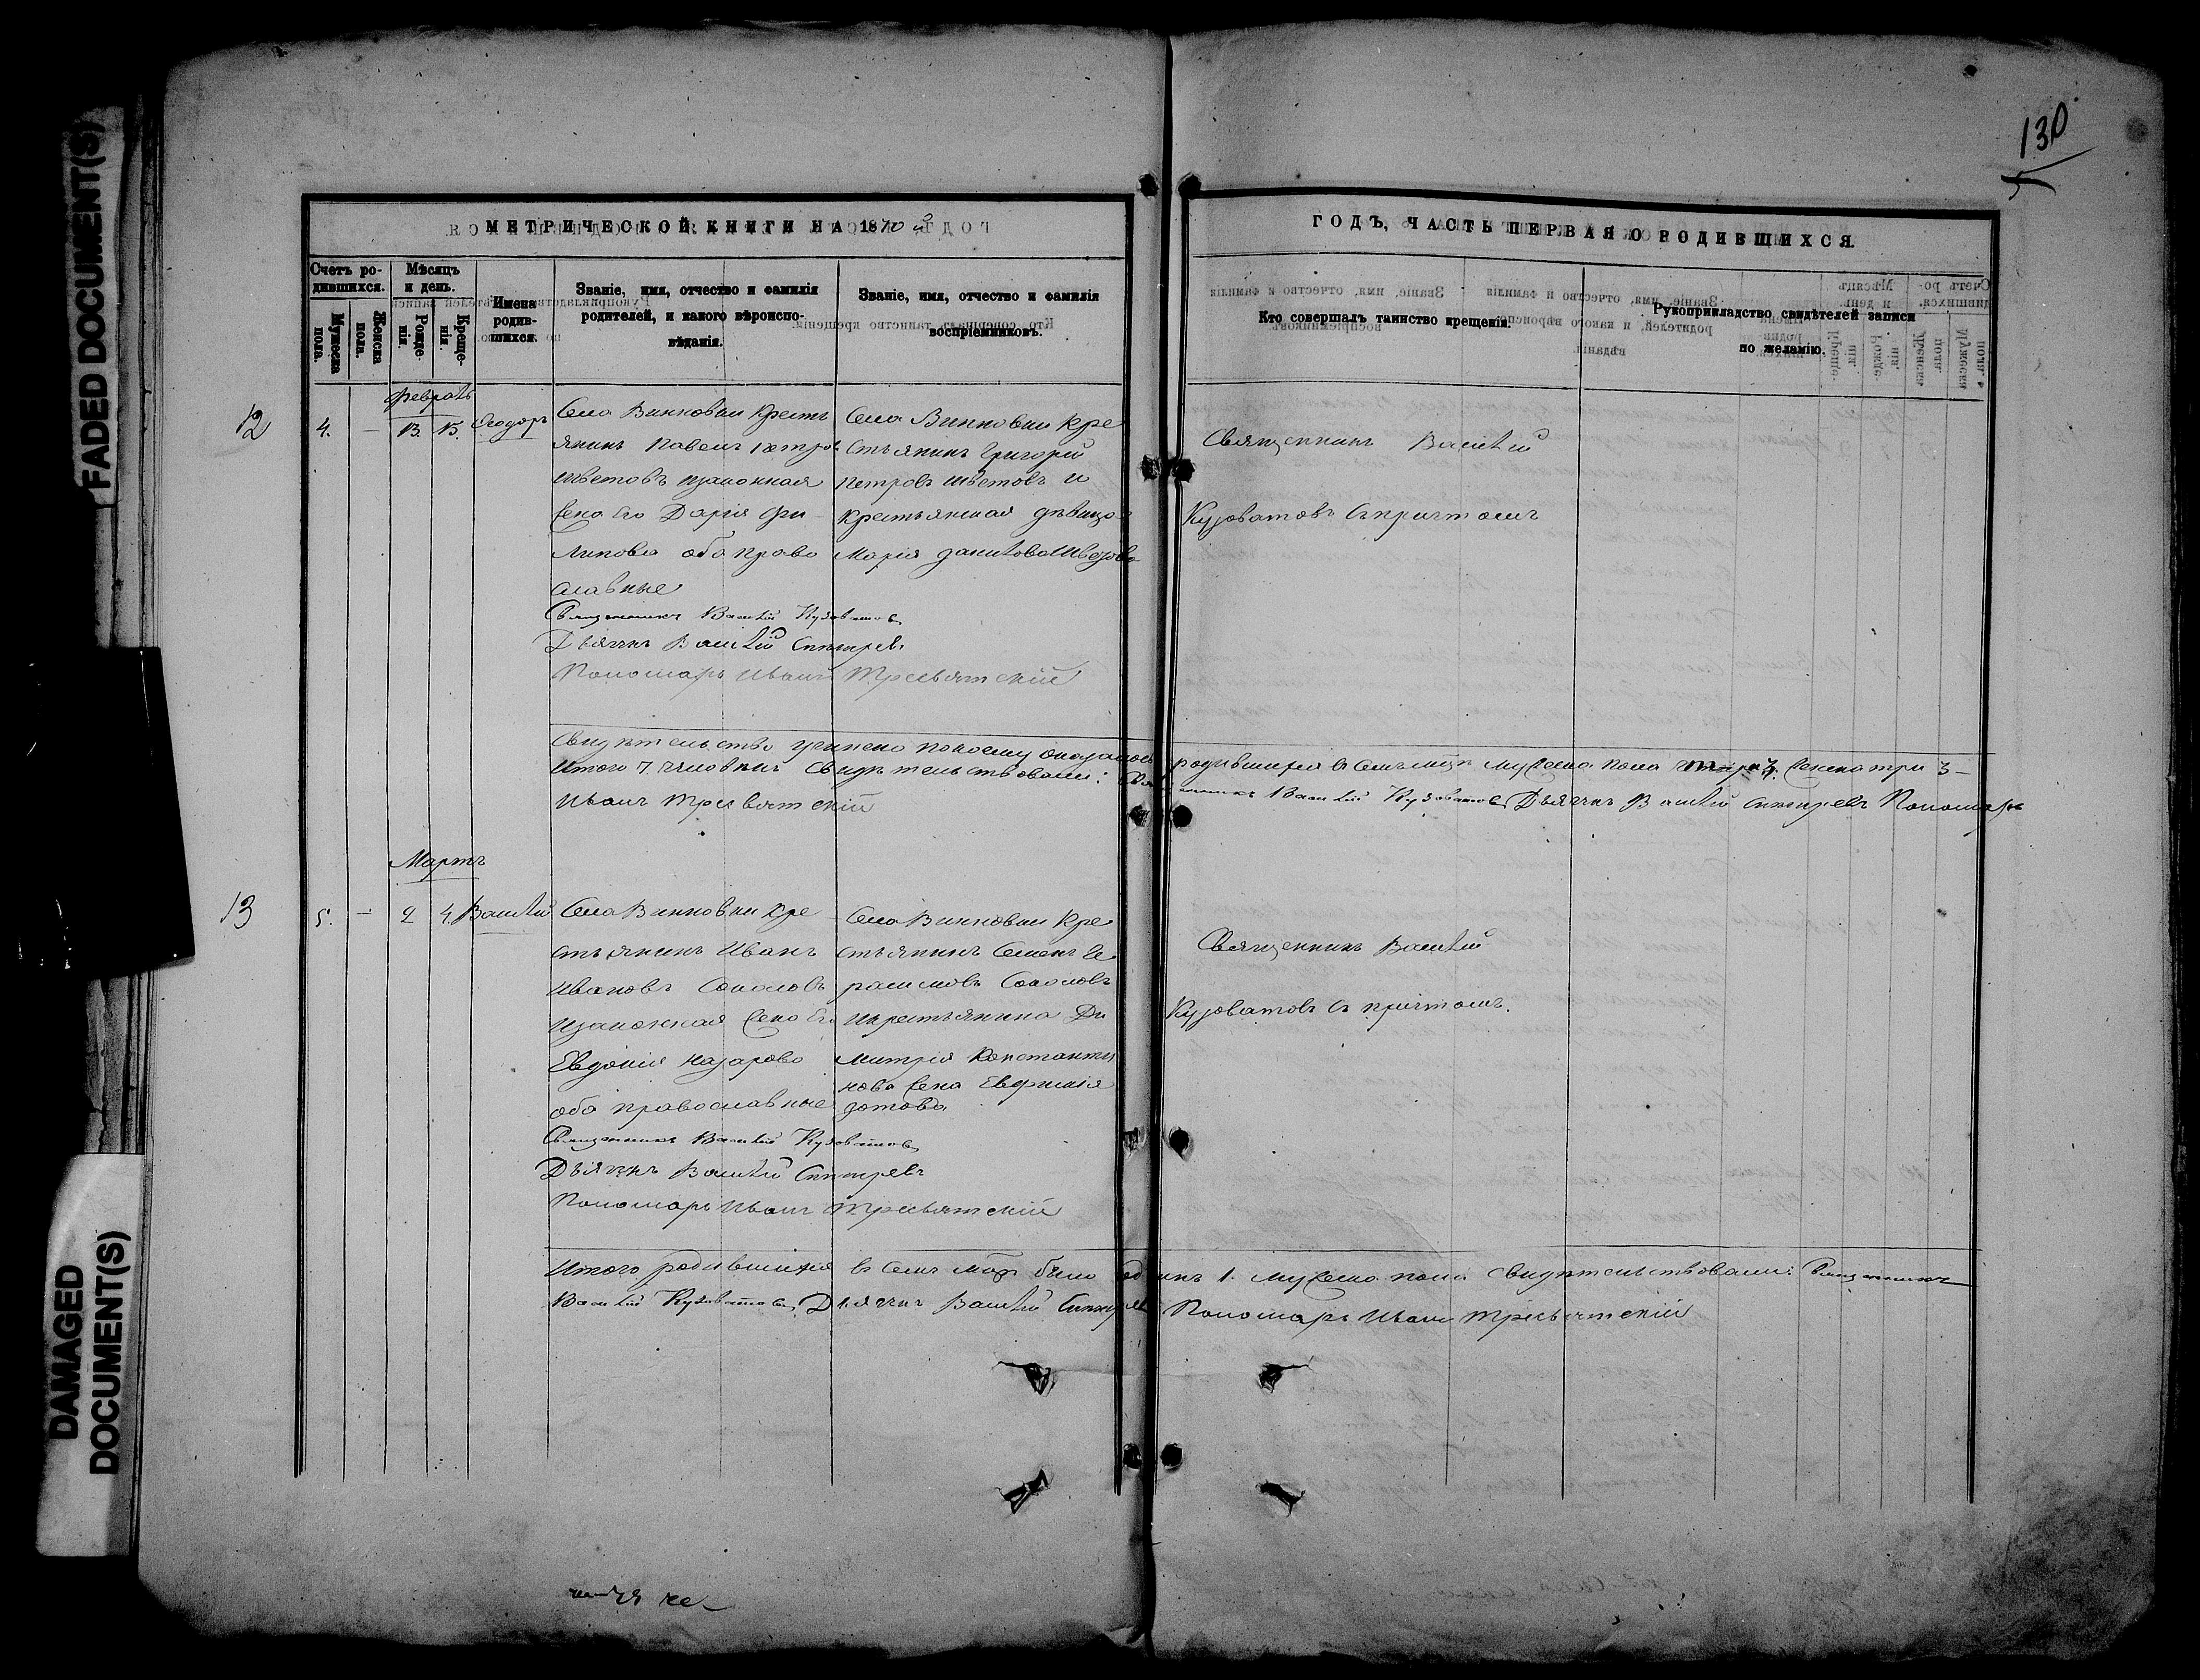 130
МЕТРИЧЕСКОЙ КНИГИ НА 1870 й
ГОДЪ, ЧАСТЬ ПЕРВАЯ О РОДИВШИХСЯ.
Счетъ ро-
дившихся.
Мужеска пола.
Женска пола.
Мѣсяцъ
и день.
Рожде-
нія.
Креще-
нія.
Имена
родив-
шихся.
Званіе, имя, отчество и фамилія
родителей, и какого вѣроиспо-
вѣданія.
Званіе, имя, отчество и фамилія
воспріемниковъ.
Кто совершалъ таинство крещенія.
Рукоприкладство свидѣтелей записи
по желанію.
Февраль
12
4. — 13. 15. Ѳеодоръ
Села Винновки Кресть
янинъ Павелъ Петровъ
Швѣтовъ изаконная
жена его Дарія Фи
липова оба право
славные
Села Винновки Кре
стьянинъ Григорій
Петровъ Швѣтовъ и
крестьянская дѣвица
Марія
Священникъ Василій
Кузоватовъ съ причтомъ
Священникъ Василій Кузоватовъ
Дьячекъ Василій
Пономарь Иванъ Тресвятскій
Свидѣтельство учинено по коему оказалось родившихся въ семъ мужеска пола женска три 3—
Итого 7. человѣкъ Свидѣтельствовали: Священникъ Василій Кузоватовъ Дьячекъ Василій Пономарь
Иванъ Тресвятскій
Мартъ
13
5. — 2 4. Василій
Села Винновки Кре
стьянинъ Иванъ
Ивановъ Соколовъ
изаконная жена его
Евдокія Назарова
оба православные
Села Винновки Кре
стьянинъ Семенъ Ге
расимовъ Соколовъ
икрестьянина Ди
митрія Константи
нова жена Евфимія
Зотова
Священникъ Василій
Кузоватовъ съ причтомъ.
Священникъ Василій Кузоватовъ
Дьячекъ Василій
Пономарь Иванъ Тресвятскій
Итого родившихся въ семъ было одинъ 1. мужеска пола Свидѣтельствовали: Священникъ
Василій Кузоватовъ Дьячекъ Василій Пономарь Иванъ Тресвятскій
FADED DOCUMENT(S)
DAMAGED
DOCUMENT(S)